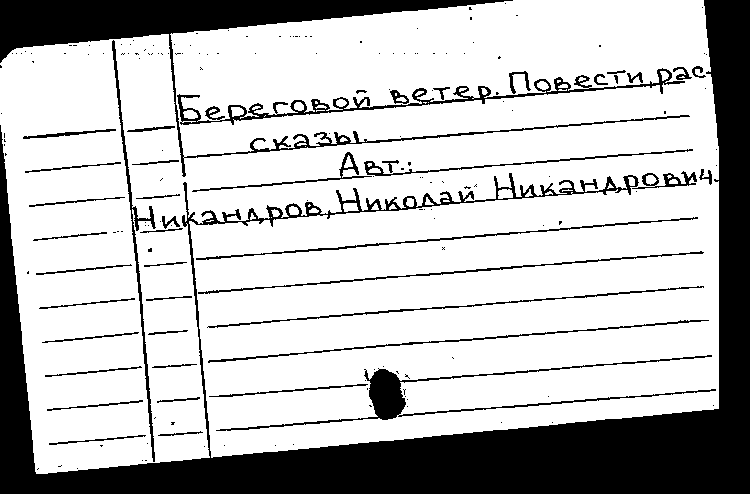 Береговой ветер. Повести, рас-
сказы.
Авт.:
Никандров, Николай Никандрович.